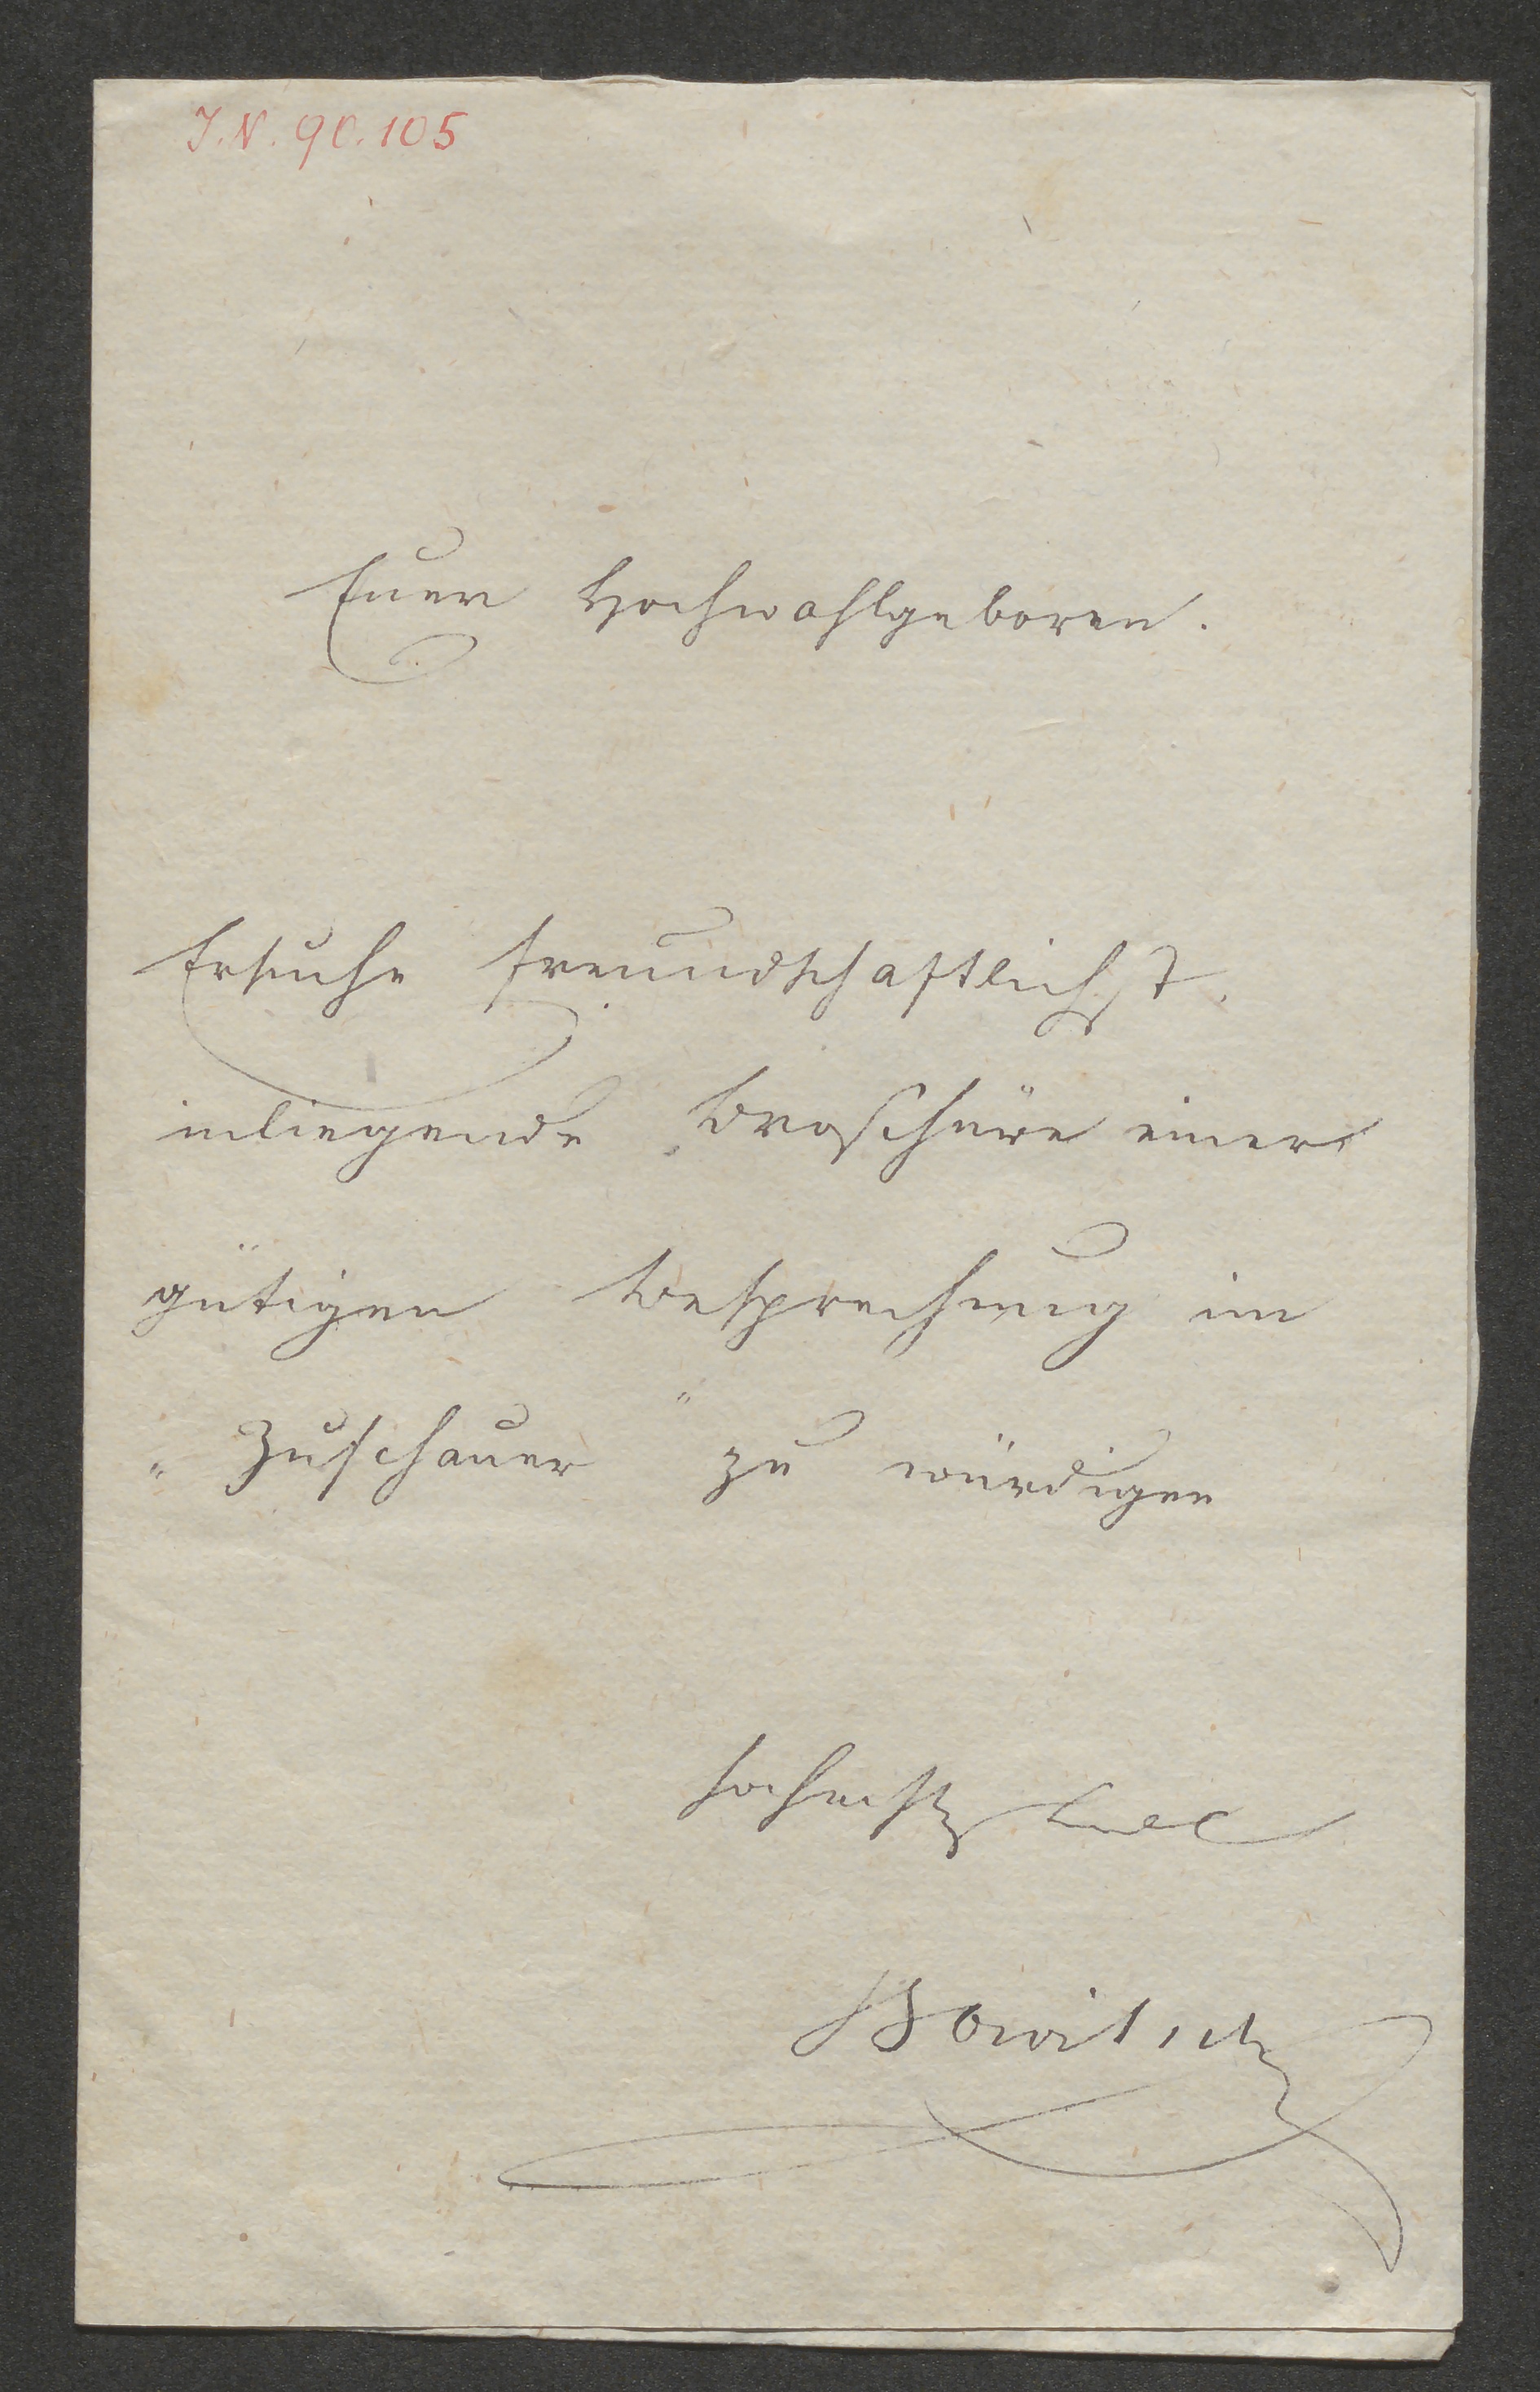 J.N. 90.105
Euer Hochwohlgeboren.
Ersuche freundschaftlichst,
inliegende Broschüre einer
gütigen Besprechung im
„Zuschauer" zu würdigen
hochachtungsvoll
Bowitsch